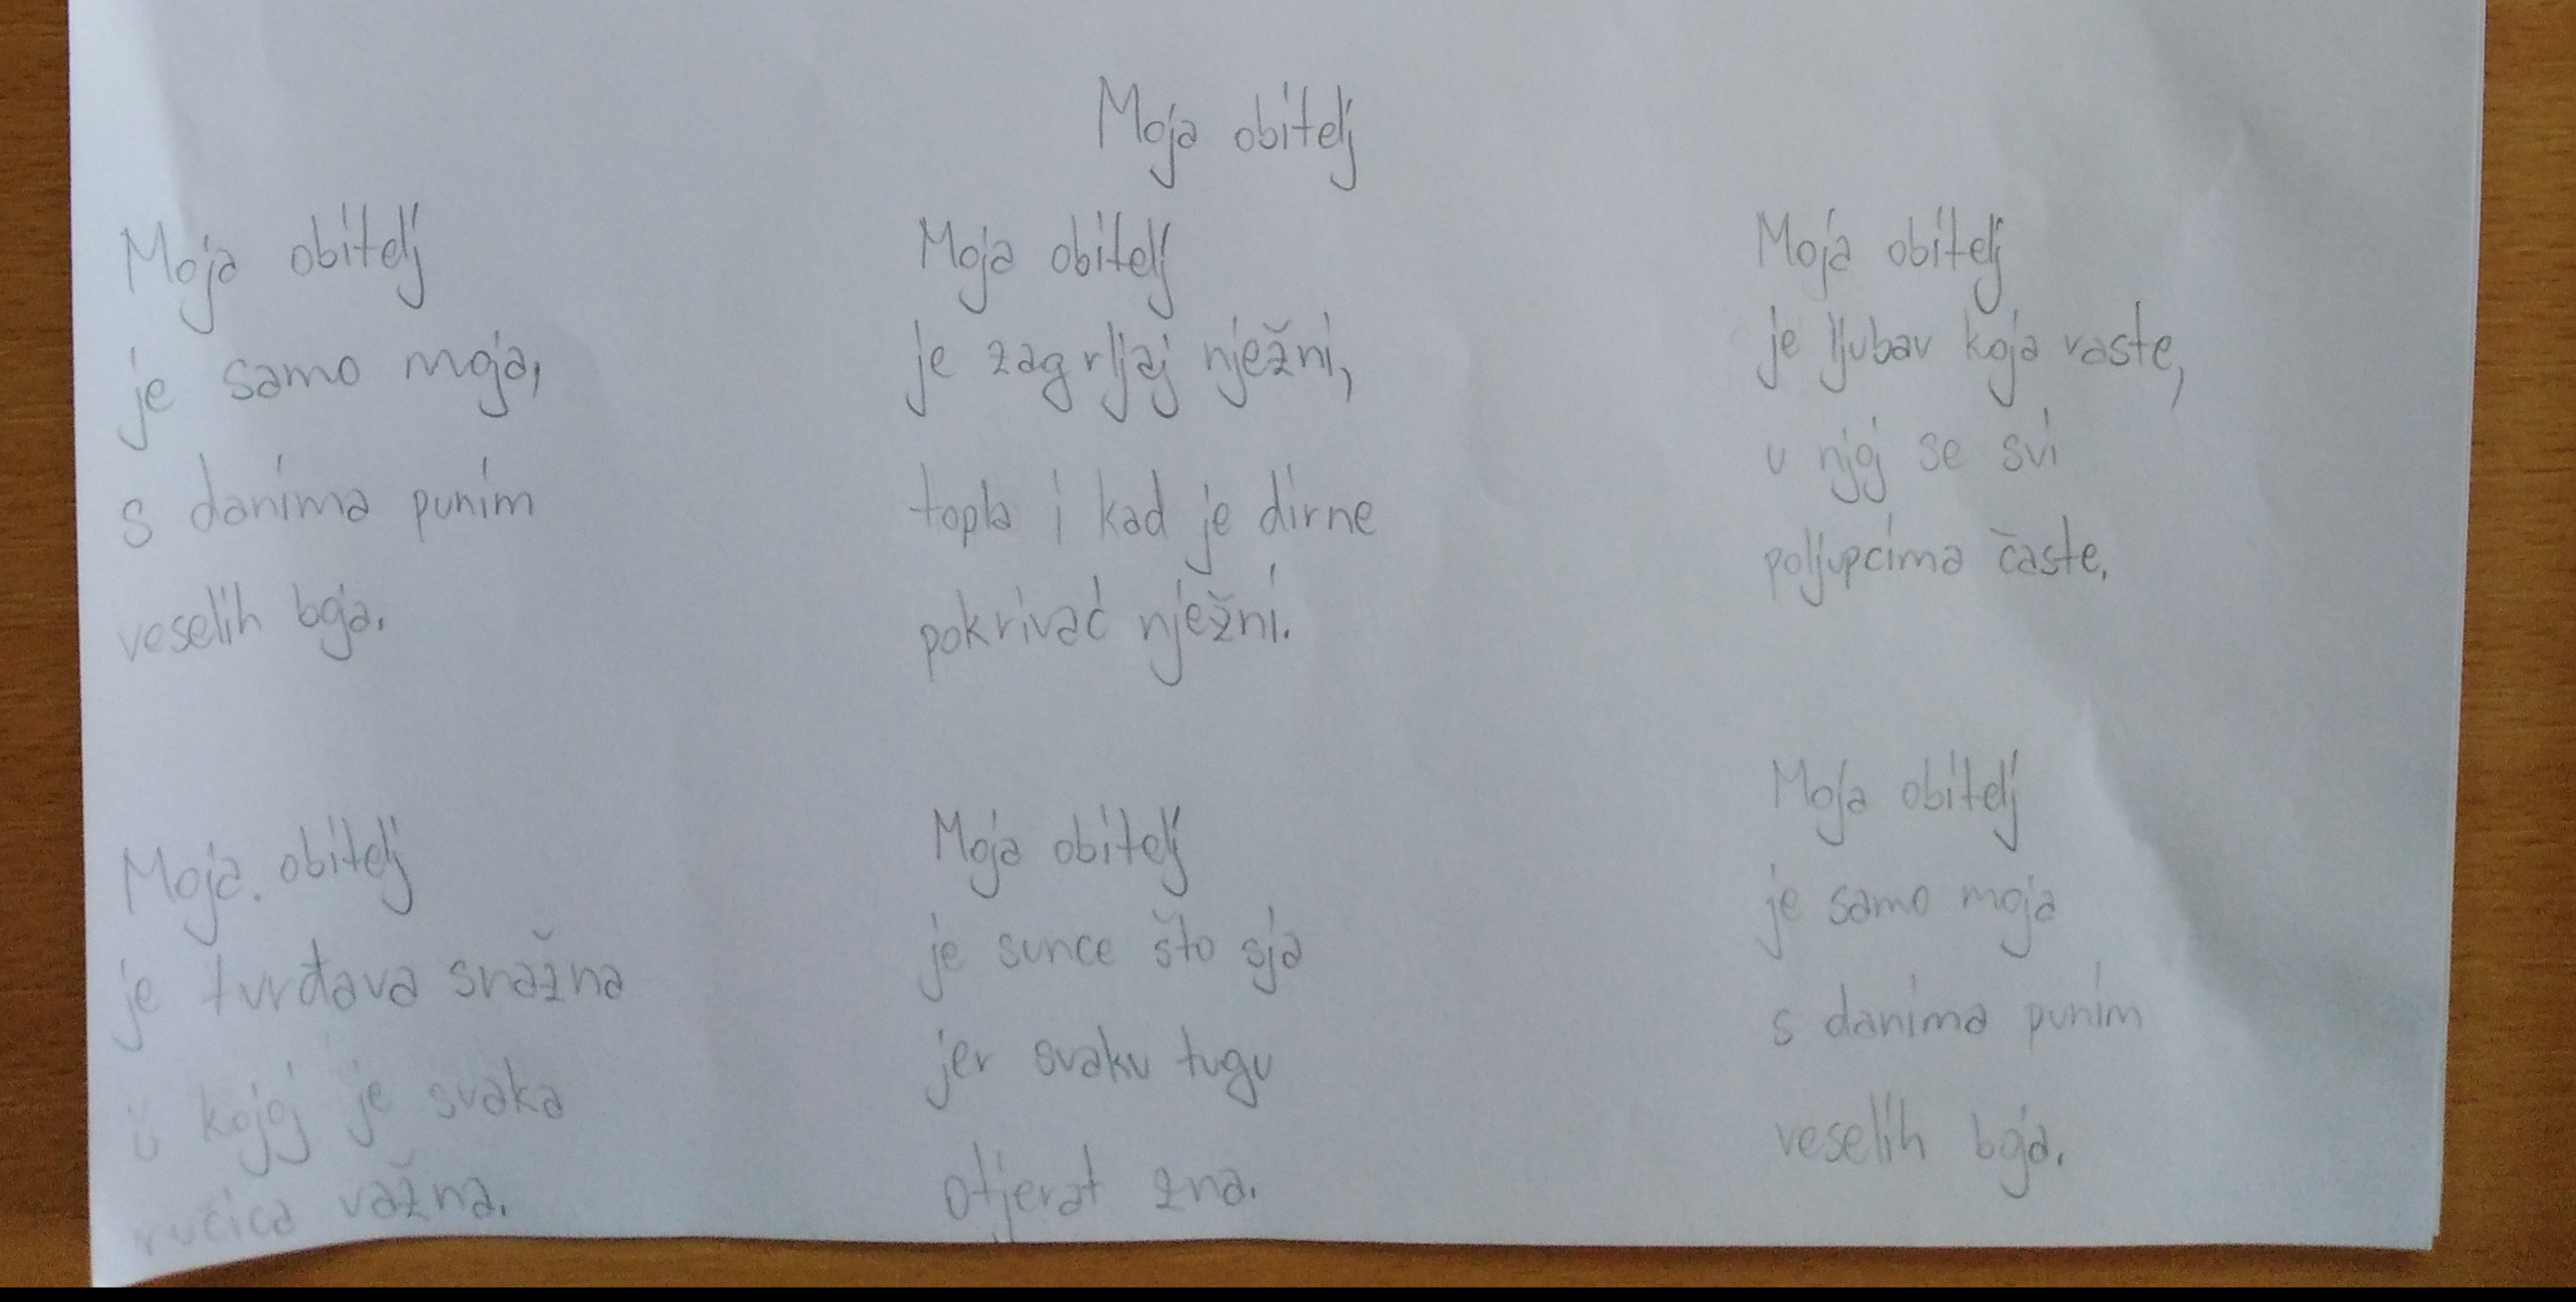 Moja obitelj
Moja obitelj
je samo moja,
s danima punim
veselih boja.
Moja obitelj
je tvrđava snažna
u kojoj je svaka
ručica važna.
Moja obitelj
je zagrljaj nježni,
topla i kad je dirne
pokrivač nježni.
Moja obitelj
je sunce što sja
jer svaku tugu
otjerat zna.
Moja obitelj
je ljubav koja raste,
u njoj se svi
poljupcima časte.
Moja obitelj
je samo moja
s danima punim
veselih boja.